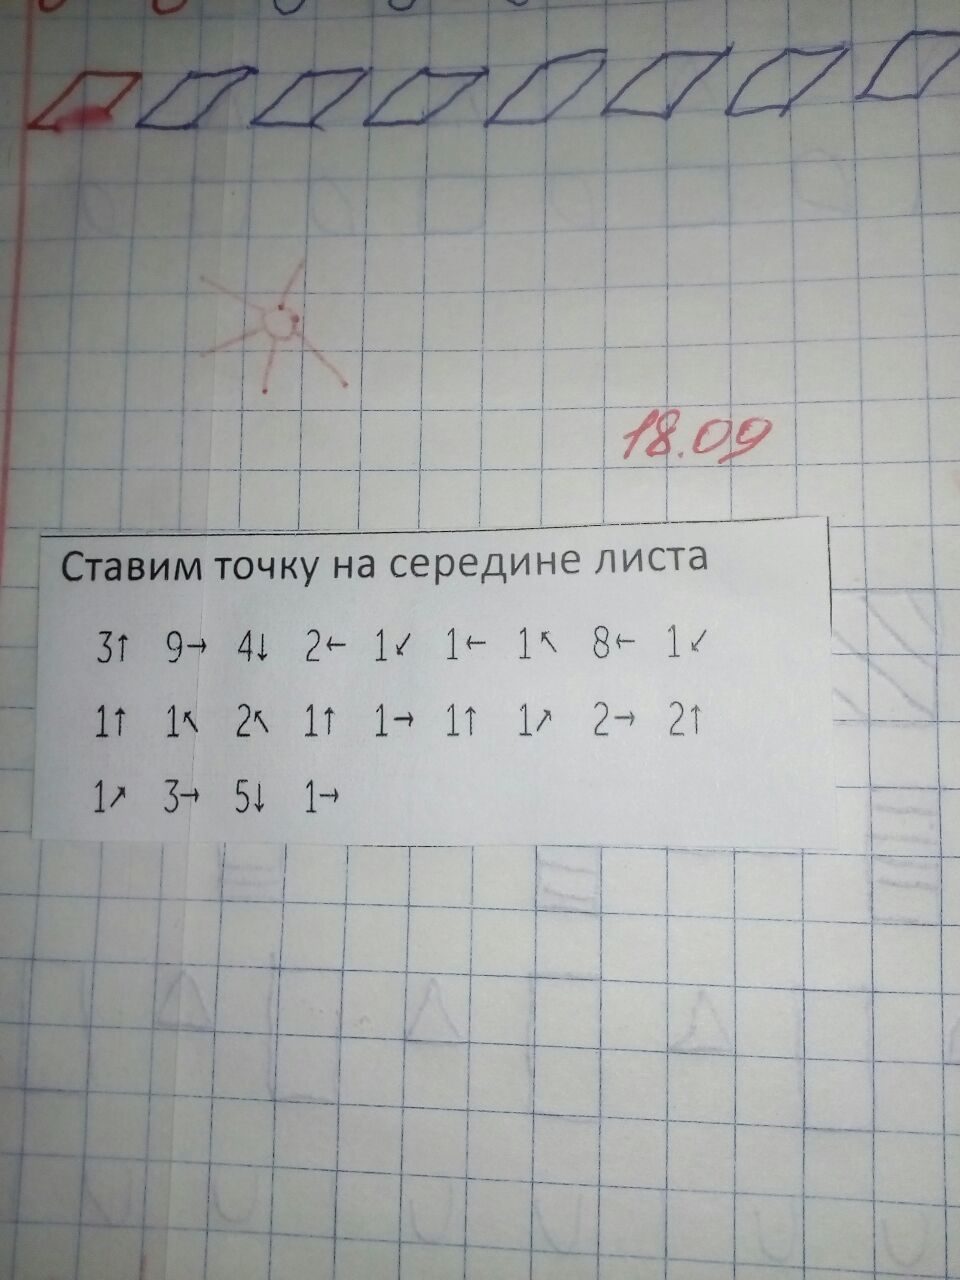 18.09
Ставим точку на середине листа
3↑ 9→ 4↓ 2← 1↙ 1← 1↖ 8← 1↙
1↑ 1↖ 2↖ 1↑ 1→ 1↑ 1↗ 2→ 2↑
1↗ 3→ 5↓ 1→